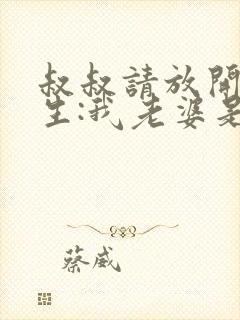 叔叔請放開
生:我老婆是
蔡威